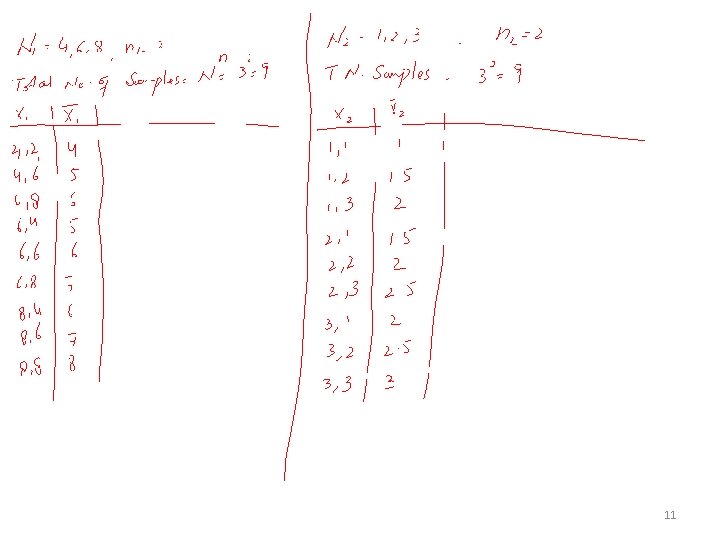 N₁ = 4,6,8, n₁ =
Total No. of Samples = Nⁿ = 3² = 9
X₁ | X̄₁
4,2, 4
4,6 5
6,8
6,4 5
6,6 6
6,8 7
8,4 6
8,6 7
8,8 8
N₂ = 1,2,3 , n₂ = 2
T N. Samples = 3² = 9
X₂ | X̄₂
1,1 1
1,2 1 5
1,3 2
2,1 1 5
2,2 2
2,3 2 5
3,1 2
3,2 2.5
3,3 3
11